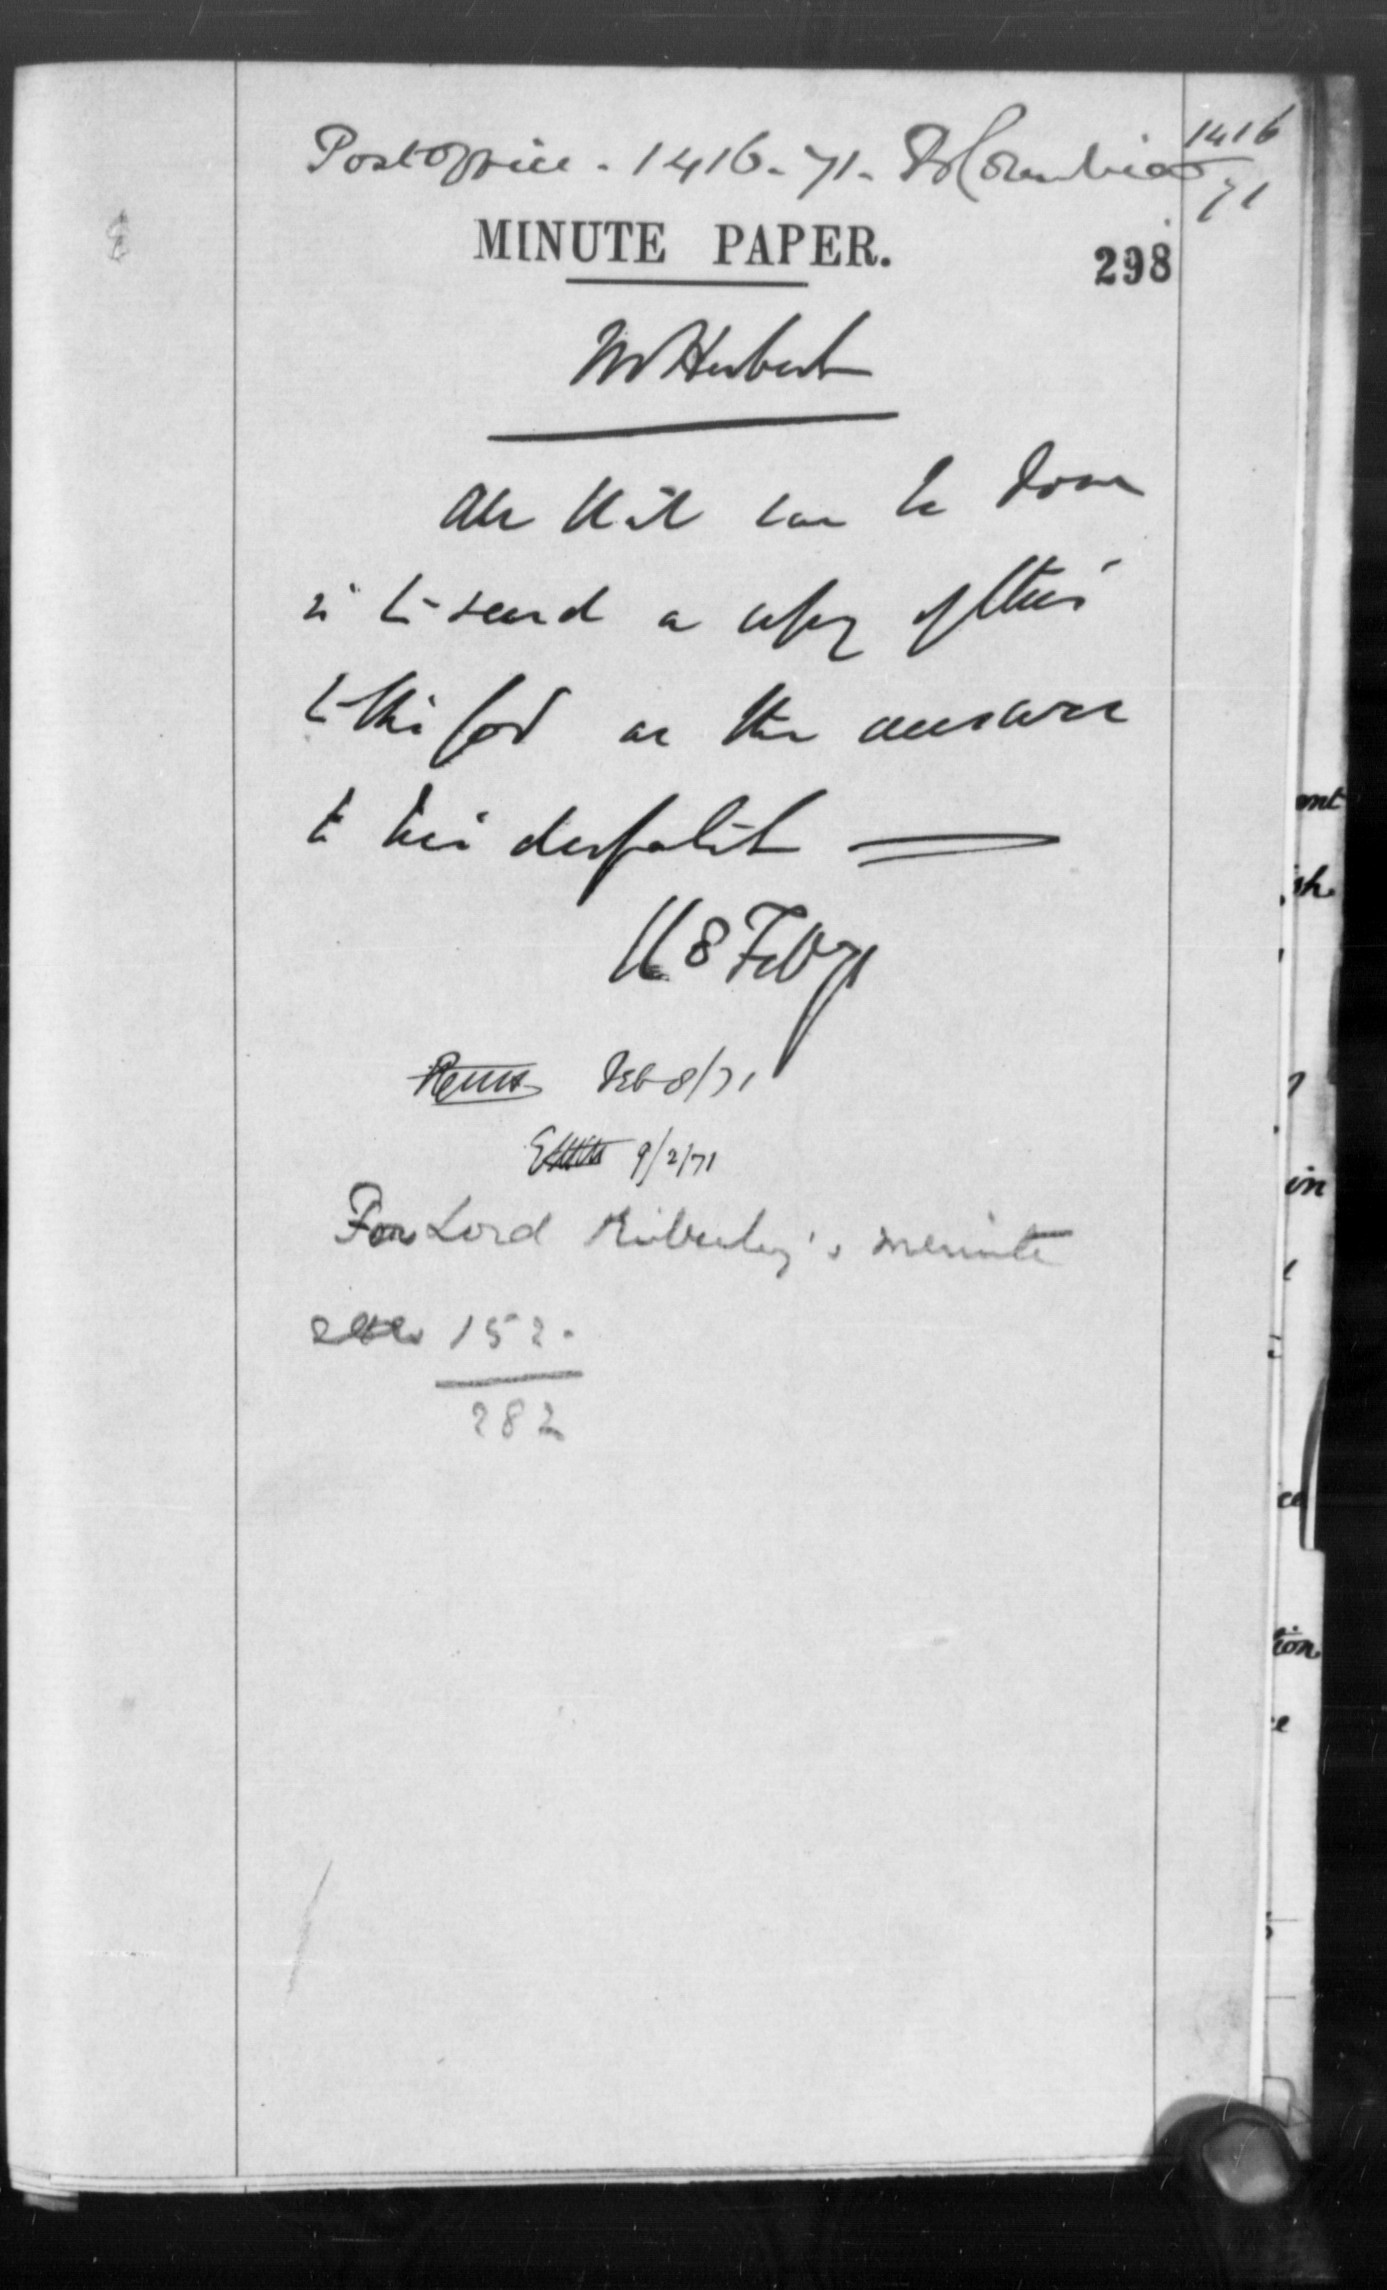 Post Office - 1416-71. B Columbia
1416
71
MINUTE PAPER.
298
Mr Herbert
All that can be done
is to send a copy of this
to the Govr as the answer
to his despatch
8 Feb 71
Feb 8/71
9/2/71
For Lord Kimberley's minute
see 152.
282